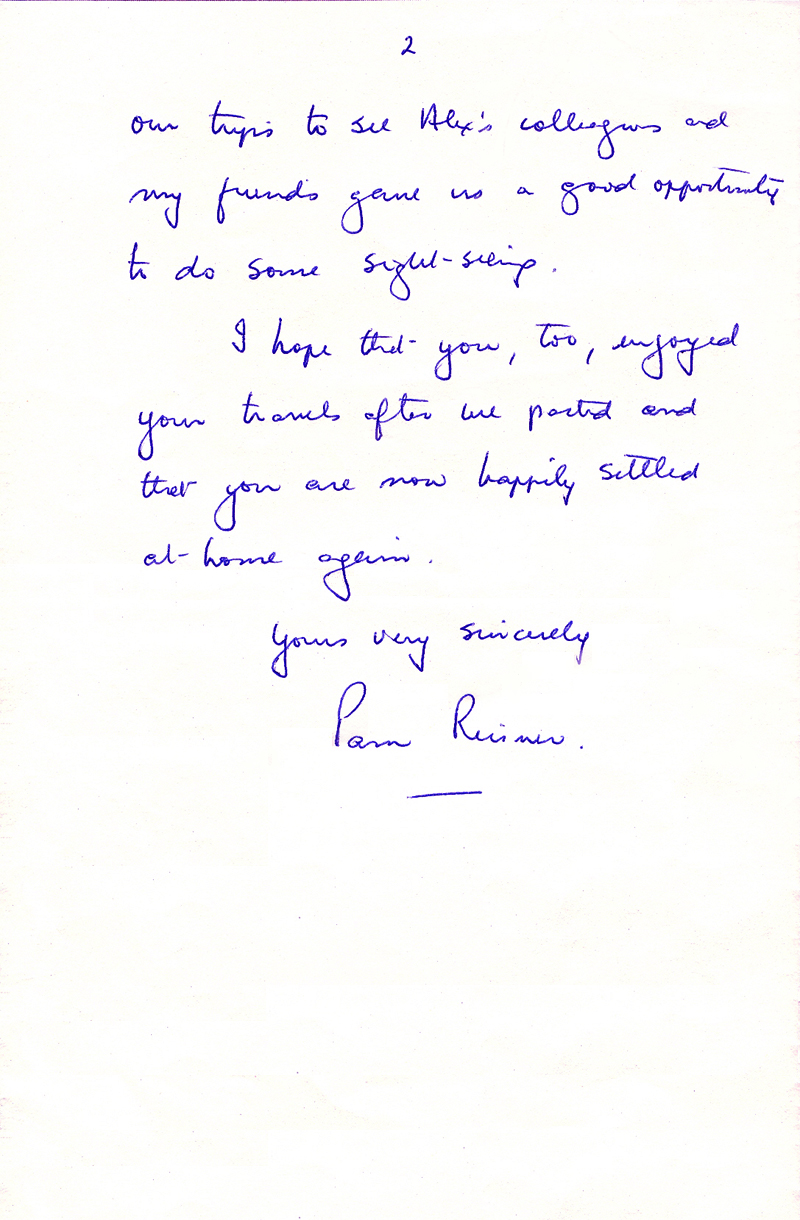 2
our trips to see Alex's colleagues and
my friends gave us a good opportunity
to do some sight-seeing.
I hope that you, too, enjoyed
your travels after we parted and
that you are now happily settled
at home again.
Yours very sincerely
Pam Reisner.